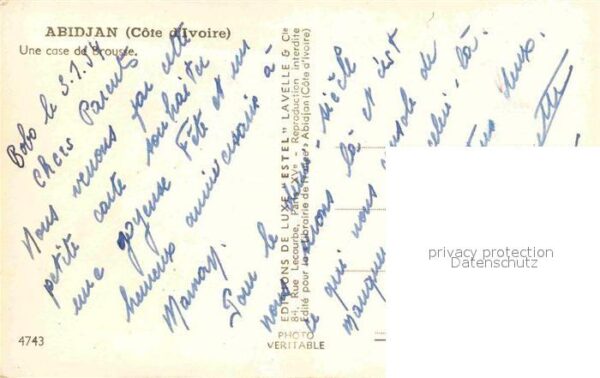 ABIDJAN (Côte d'Ivoire)
Une case de Brousse.
Bobo le 3.1.57
Chers Parents
Nous venons par cette
petite carte souhaiter
une joyeuse Fête et un
heureux anniversaire à
Maman.
Pour le demi-siècle
nous serons là et c'est
ce qui nous console de
manquer celui-là.
deux.
EDITIONS DE LUXE "ESTEL" LAVELLE & Cie
84, Rue Lecourbe, Paris XVe - Reproduction interdite
Edité pour la « Librairie de France » Abidjan (Côte d'Ivoire)
PHOTO
VERITABLE
4743
privacy protection
Datenschutz